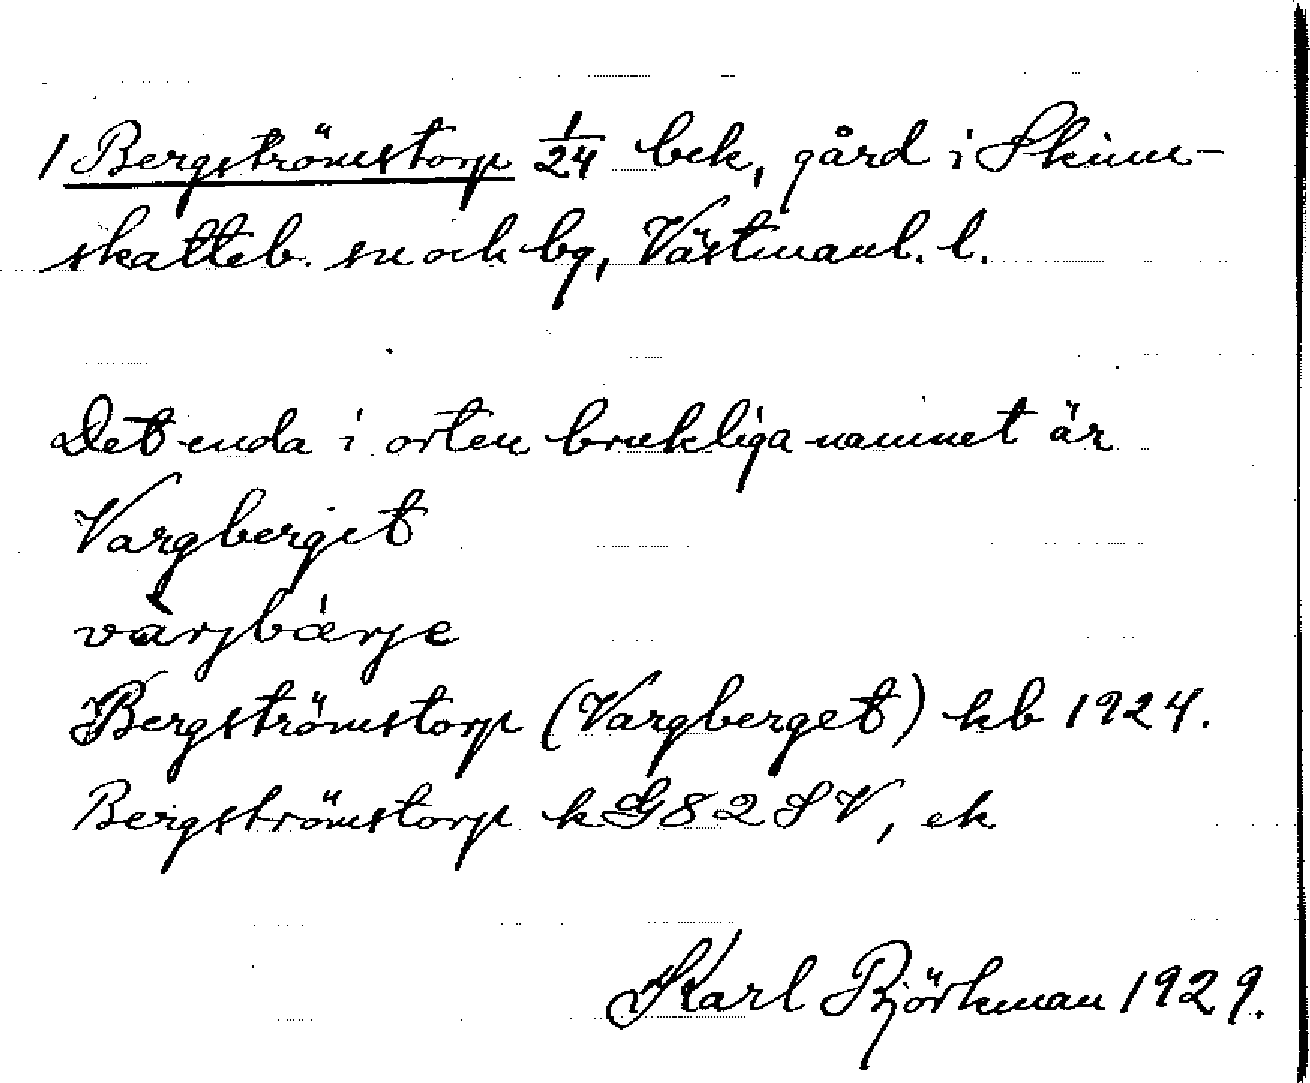 1 Bergströmstorp 1/24 bek, gård i Skinn-
skatteb. sn och bg, Västmanl. l.
Det enda i orten brukliga namnet är
Vargberget
vàrjbárje
Bergströmstorp (Vargberget) kb 1924.
Bergströmstorp k G82SV, ek
Karl Björkman 1929.